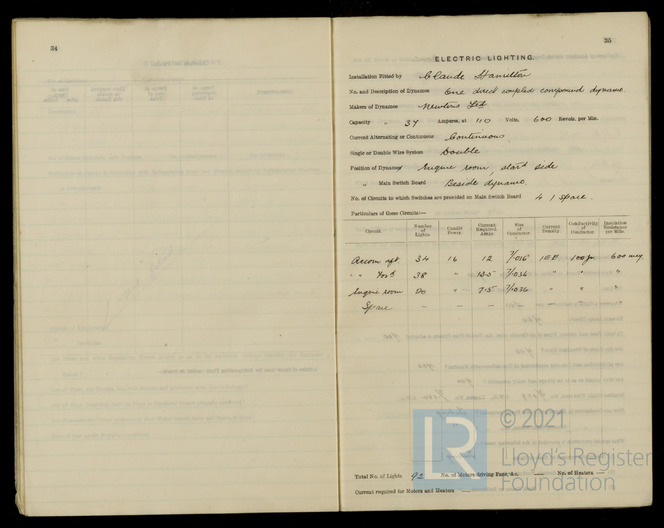 34
35
ELECTRIC LIGHTING.
Installation Fitted by Claude Hamilton
No. and Description of Dynamos One direct coupled compound dynamo.
Makers of Dynamos Newtons Ltd
Capacity " 37 Amperes, at 110 Volts, 600 Revols. per Min.
Current Alternating or Continuous Continuous
Single or Double Wire System Double
Position of Dynamos Engine room, starbd side
" Main Switch Board Beside dynamo.
No. of Circuits to which Switches are provided on Main Switch Board 4 1 Spare.
Particulars of these Circuits:—
Circuit. Number of Lights. Candle Power. Current Required Amps. Size of Conductor. Current Density. Conductivity of Conductor. Insulation Resistance per Mile.
Accom aft 34 16 12 7/.036 100% 600 meg
" " Ford 38 " 13.5 7/.036 " " "
Engine room 20 " 7.5 7/.036 " " "
Spare —
Total No. of Lights 92 No. of Motors driving Fans, &c. — No. of Heaters —
Current required for Motors and Heaters —
LR
© 2021
Lloyd's Register
Foundation